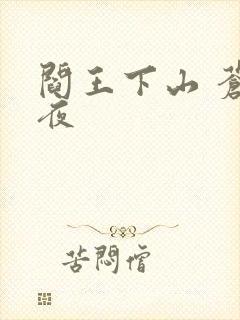 閻王下山 蒼
夜
苦悶僧